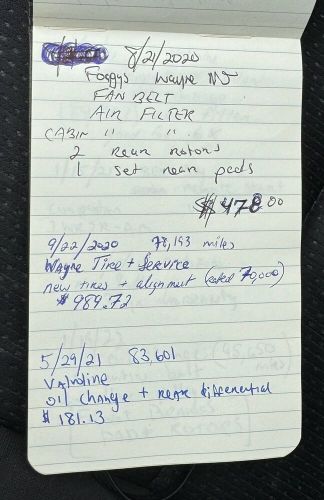 8/21/2020
Foggys Wayne NJ
FAN BELT
AIR FILTER
CABIN " "
2 Rear Rotors
1 set rear pads
$ 478.00
9/22/2020 78,193 miles
Wayne Tire + Service
new tires + alignment (rated 70,000)
$989.72
5/29/21 83,601
Valvoline
oil change + rear differential
$ 181.13